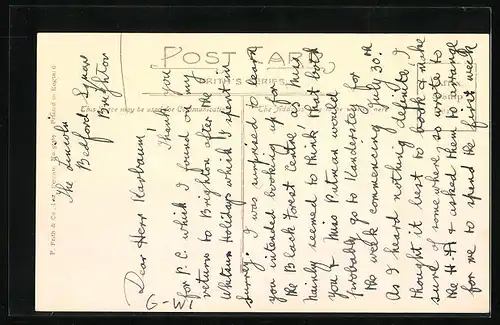 The Lincoln
Bedford Square
Brighton
Dear Herr Karbaum!
Thank you
for P.C. which I found on my
return to Brighton after the
Whitsun Holidays which I spent in
Surrey. I was surprised to learn
you intended booking up for
the Black Forest Centre as Miss
Hainly seemed to think that both
you & Miss Putnam would
probably go to Kandersteg for
the week commencing July 30.
As I heard nothing definite I
thought it best to book & make
sure of somewhere so wrote to
the H.F.A & asked them to arrange
for me to spend the first week
G-W1
POST CARD
FRITH'S SERIES
This space may be used for Communication
The Address
Stamp
F. Frith & Co., Ltd., Reigate
Printed in England